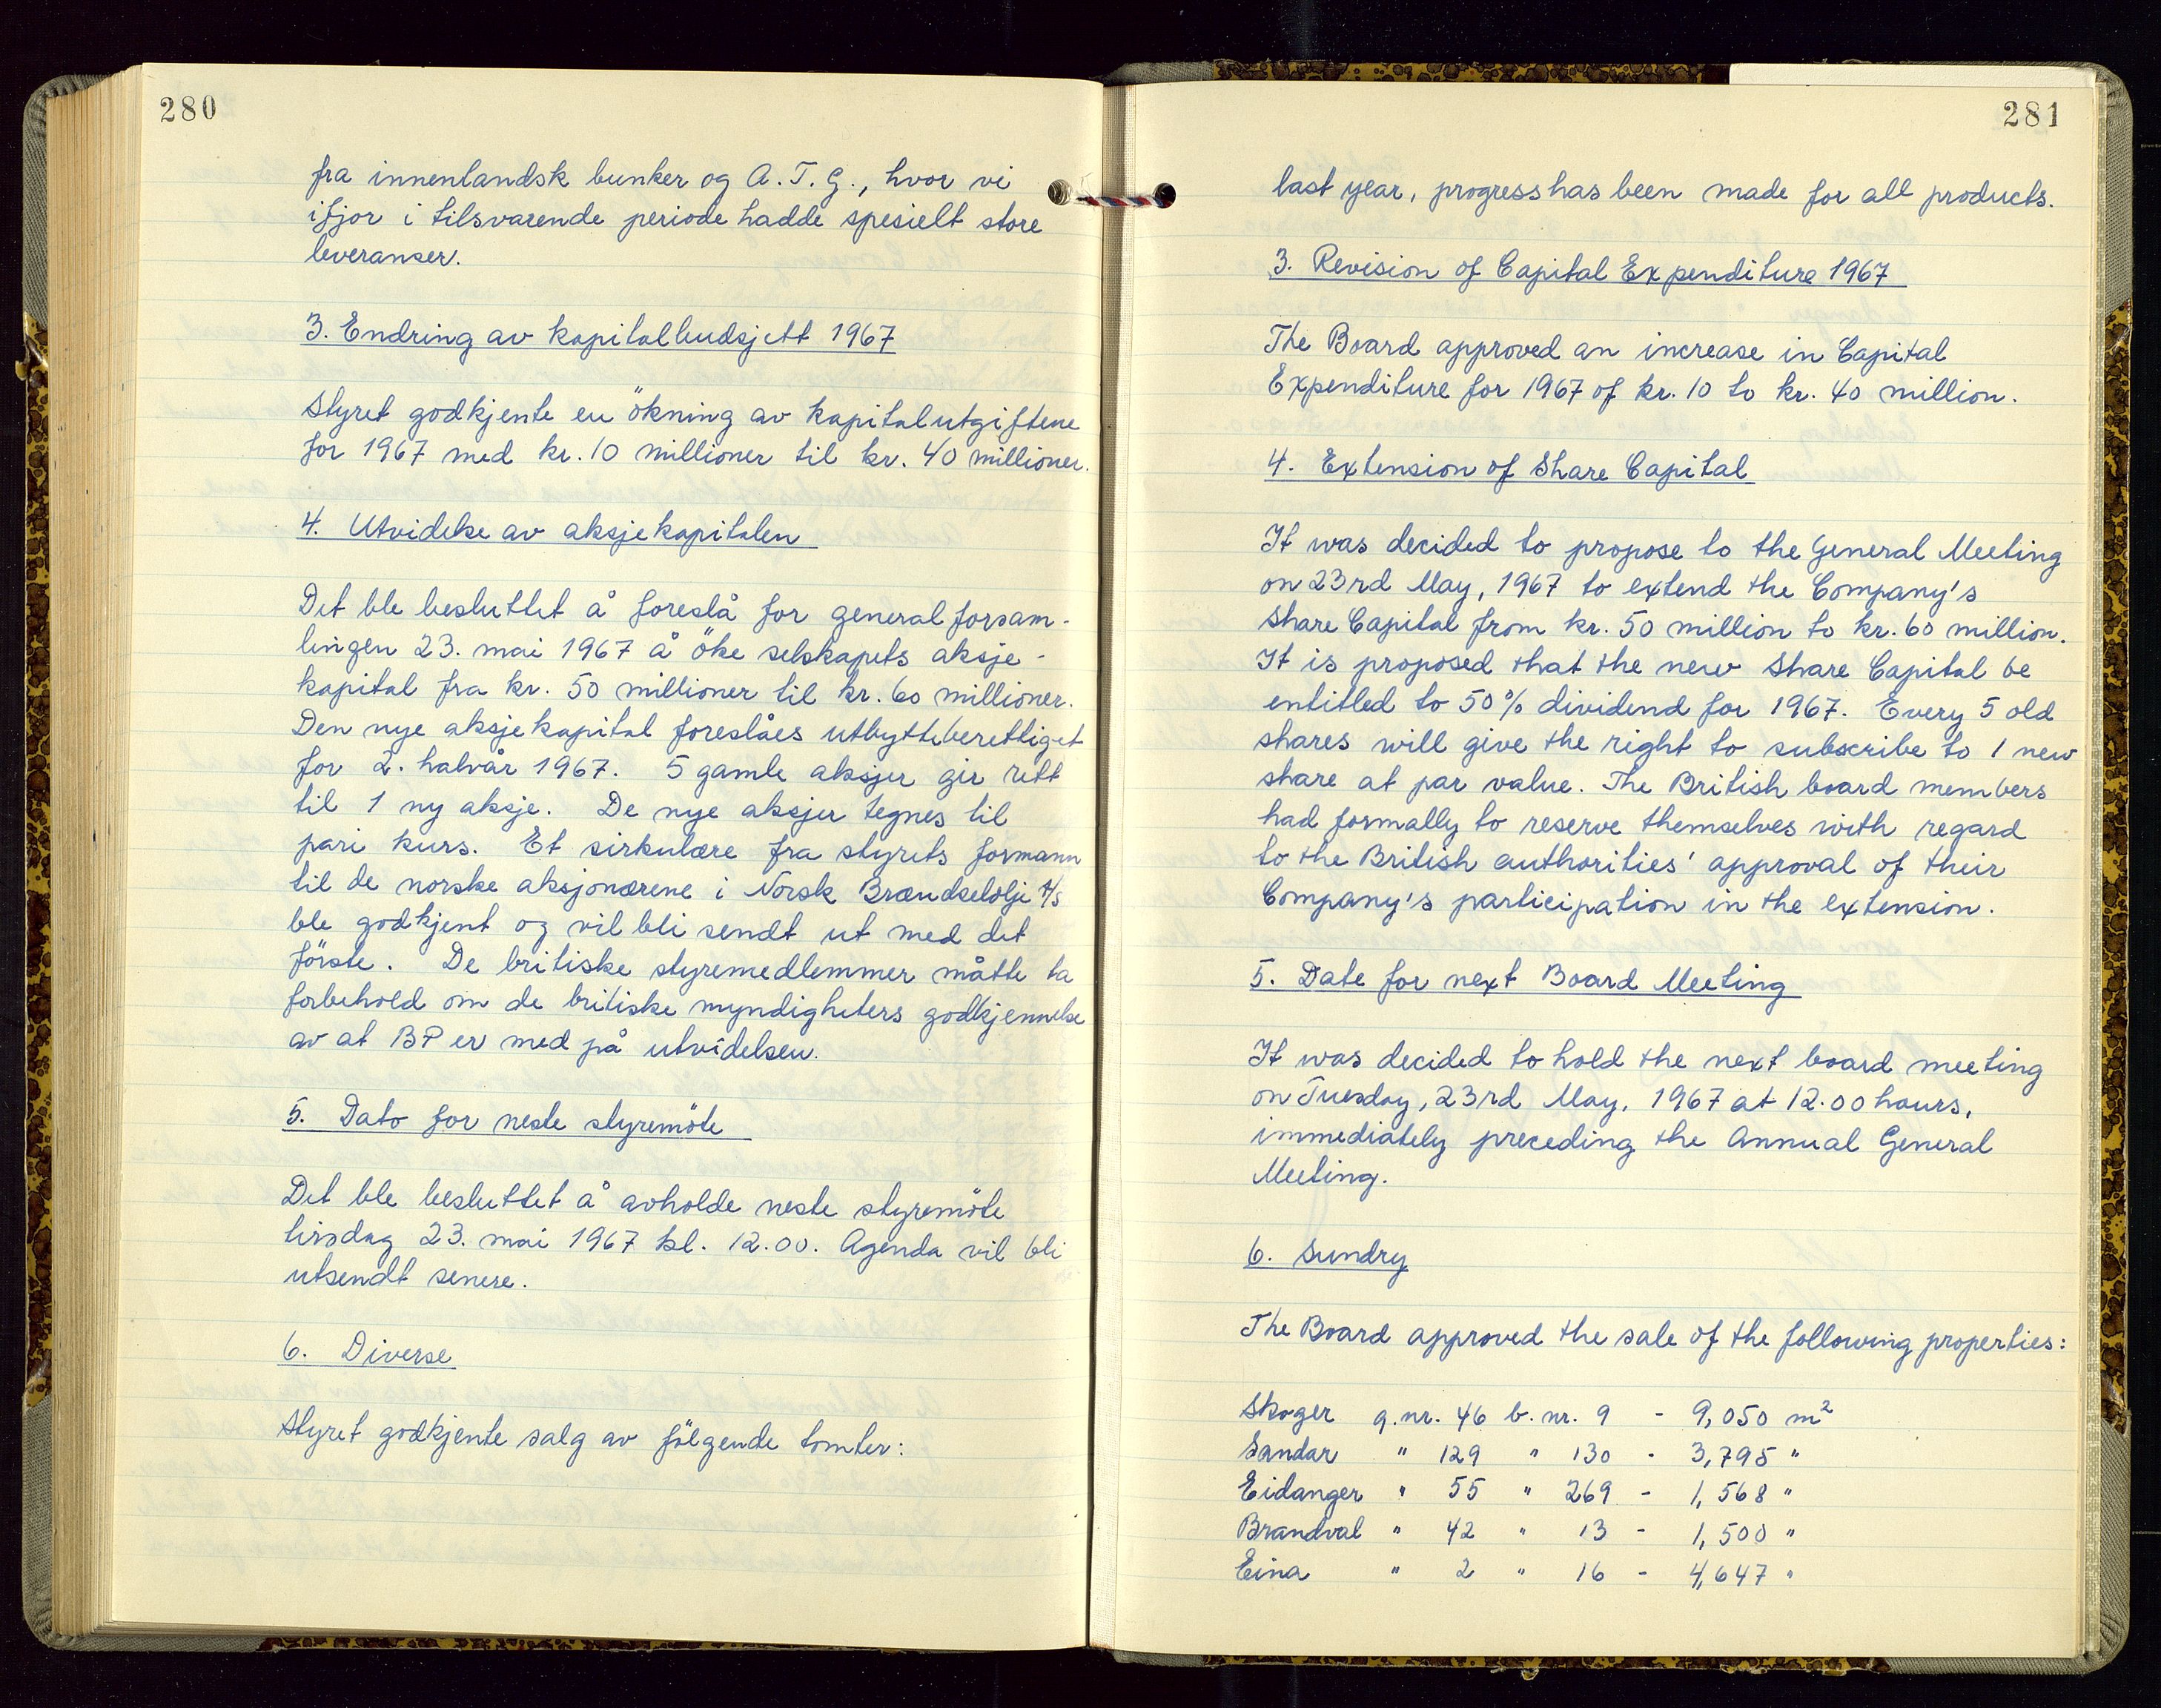 280
fra innenlandsk bunker og A.T.G., hvor vi
ifjor i tilsvarende periode hadde spesielt store
leveranser.
3. Endring av kapitalbudsjett 1967
Styret godkjente en ökning av kapitalutgiftene
for 1967 med kr. 10 millioner til kr. 40 millioner.
4. Utvidelse av aksjekapitalen
Det ble besluttet å foreslå for generalforsam-
lingen 23. mai 1967 å öke selskapets aksje-
kapital fra kr. 50 millioner til kr. 60 millioner.
Den nye aksjekapital foreslåes utbytteberettiget
for 2. halvår 1967. 5 gamle aksjer gir rett
til 1 ny aksje. De nye aksjer tegnes til
pari kurs. Et sirkulære fra styrets formann
til de norske aksjonærene i Norsk Brændselolje A/S
ble godkjent og vil bli sendt ut med det
förste. De britiske styremedlemmer måtte ta
forbehold om de britiske myndigheters godkjennelse
av at BP er med på utvidelsen.
5. Dato for neste styremöte
Det ble besluttet å avholde neste styremöte
tirsdag 23. mai 1967 kl. 12.00. Agenda vil bli
utsendt senere.
6. Diverse
Styret godkjente salg av fölgende tomter:
281
last year, progress has been made for all products.
3. Revision of Capital Expenditure 1967
The Board approved an increase in Capital
Expenditure for 1967 of kr. 10 to kr. 40 million.
4. Extension of Share Capital
It was decided to propose to the General Meeting
on 23rd May, 1967 to extend the Company's
Share Capital from kr. 50 million to kr. 60 million.
It is proposed that the new Share Capital be
entitled to 50% dividend for 1967. Every 5 old
shares will give the right to subscribe to 1 new
share at par value. The British board members
had formally to reserve themselves with regard
to the British authorities' approval of their
Company's participation in the extension.
5. Date for next Board Meeting
It was decided to hold the next board meeting
on Tuesday, 23rd May, 1967 at 12.00 hours,
immediately preceding the Annual General
Meeting.
6. Sundry
The Board approved the sale of the following properties:
Skoger g.nr. 46 b.nr. 9 - 9,050 m²
Sandar " 129 " 130 - 3,795 "
Eidanger " 55 " 269 - 1,568 "
Brandval " 42 " 13 - 1,500 "
Eina " 2 " 16 - 4,647 "